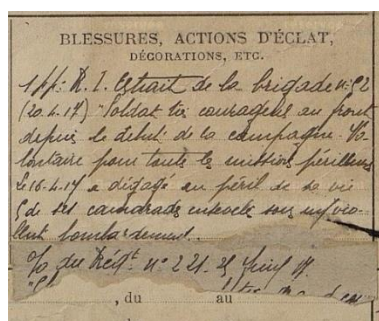 BLESSURES, ACTIONS D'ÉCLAT,
DÉCORATIONS, ETC.
R. I. Extrait de la brigade n° 52
(20.4.17) "Soldat très courageux au front
depuis le début de la campagne. Vo-
lontaire pour toutes les missions périlleuses
le 16-4-17 a dégagé au péril de sa vie
5 de ses camarades ensevelis sous un vio-
lent bombardement.
O/ du Régt. n° 221. 25 Juin 17.
, du au